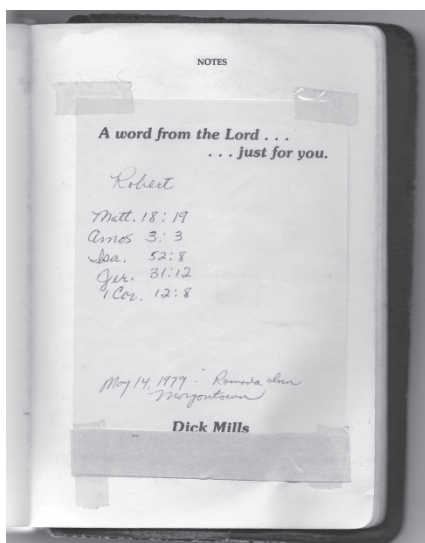 NOTES
A word from the Lord . . .
. . . just for you.
Robert
Matt. 18:19
Amos 3:3
Isa. 52:8
Jer. 31:12
1 Cor. 12:8
May 14, 1979 - Ramada Inn
Morgantown
Dick Mills